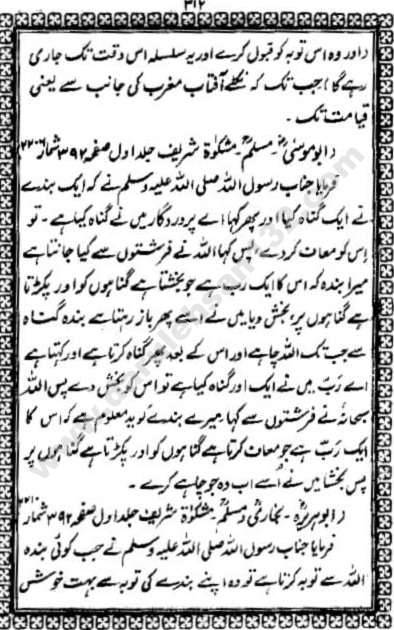 ۳۱۲
(اور وہ اس توبہ کو قبول کرے اور یہ سلسلہ اس وقت تک جاری
رہے گا) جب تک کہ نکلے آفتاب مغرب کی جانب سے یعنی
قیامت تک۔
(ابو موسیٰؓ۔ مسلمؒ۔ مشکوٰۃ شریف جلد اول صفحہ ۳۹۲ شمار
فرمایا جناب رسول اللہ صلی اللہ علیہ وسلم نے کہ ایک بندے
نے ایک گناہ کیا اور پھر کہا اے پروردگار میں نے گناہ کیا ہے۔ تو
اس کو معاف کر دے، پس کہا اللہ نے فرشتوں سے کیا جانتا ہے
میرا بندہ کہ اس کا ایک رب ہے جو بخشتا ہے گناہوں کو اور پکڑتا
ہے گناہوں پر، بخش دیا میں نے اسے پھر باز رہتا ہے بندہ گناہ
سے جب تک اللہ چاہے اور اس کے بعد پھر گناہ کرتا ہے اور کہتا ہے
اے ربّ میں نے ایک اور گناہ کیا ہے تو اس کو بخش دے پس اللہ
سبحانہٗ نے فرشتوں سے کہا، میرے بندے کو یہ معلوم ہے کہ اس کا
ایک ربّ ہے جو معاف کرتا ہے گناہوں کو اور پکڑتا ہے گناہوں پر
پس بخشا میں نے اُسے اب وہ جو چاہے کرے۔
(ابو ہریرہؓ۔ بخاریؒ و مسلمؒ۔ مشکوٰۃ شریف جلد اول صفحہ ۳۹۲ شمار
فرمایا جناب رسول اللہ صلی اللہ علیہ وسلم نے جب کوئی بندہ
اللہ سے توبہ کرتا ہے تو وہ اپنے بندے کی توبہ سے بہت خوش